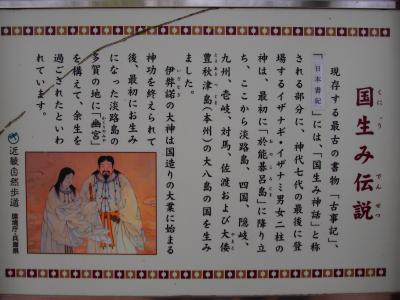 国生み伝説
くにう でんせつ
現存する最古の書物「古事記」、
「日本書記」には、「国生み神話」と称
される部分に、神代七代の最後に登
場するイザナギ・イザナミ男女二柱の
神は、最初に「於能碁呂島」に降り立
おのころしま
ち、ここから淡路島、四国、隠岐、
九州、壱岐、対馬、佐渡および大倭
やまと
豊秋津島(本州)の大八島の国を生み
とよあきつしま
ました。
伊弉諾の大神は国造りの大業に始まる
いざなぎ
神功を終えられて
後、最初にお生み
になった淡路島の
多賀の地に「幽宮」
かくりのみや
を構えて、余生を
過ごされたといわ
れています。
近畿自然歩道
環境庁・兵庫県